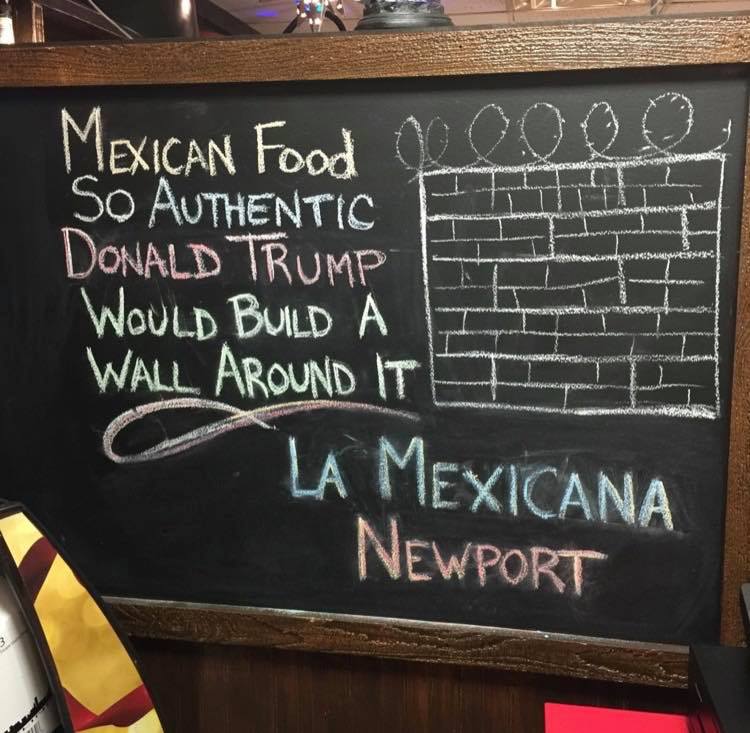 Mexican Food
So Authentic
Donald Trump
Would Build A
Wall Around It
La Mexicana
Newport
3